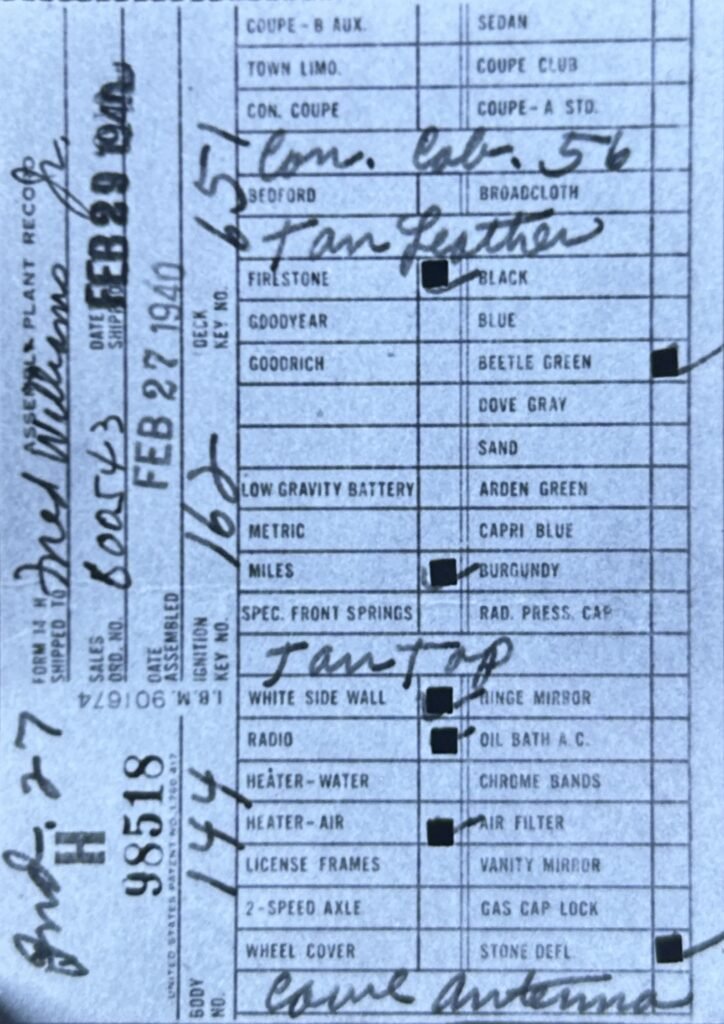 COUPE-B AUX. SEDAN
TOWN LIMO. COUPE CLUB
CON. COUPE COUPE-A STD.
Con. Cab. 56
BEDFORD BROADCLOTH
Tan Leather
FIRESTONE BLACK
GOODYEAR BLUE
GOODRICH BEETLE GREEN
DOVE GRAY
SAND
LOW GRAVITY BATTERY ARDEN GREEN
METRIC CAPRI BLUE
MILES BURGUNDY
SPEC. FRONT SPRINGS RAD. PRESS. CAP
Tan Top
WHITE SIDE WALL HINGE MIRROR
RADIO OIL BATH A.C.
HEATER-WATER CHROME BANDS
HEATER-AIR AIR FILTER
LICENSE FRAMES VANITY MIRROR
2-SPEED AXLE GAS CAP LOCK
WHEEL COVER STONE DEFL.
Cowl Antenna
FORM 14 H ASSEMBLY PLANT RECORD
SHIPPED TO Fred Williams Jr.
SALES ORD. NO. DATE SHIPPED FEB 29 1940
DATE ASSEMBLED FEB 27 1940
IGNITION KEY NO. 162 DECK KEY NO. 651
BODY NO. 144
I.B.M. 901674
Ind. 27
H
98518
UNITED STATES PATENT NO.